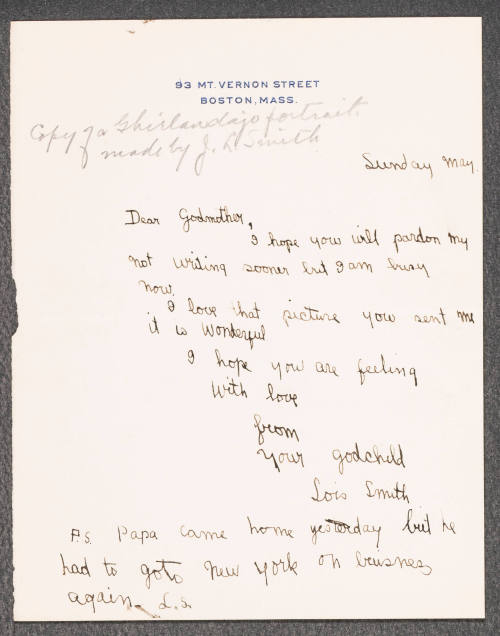 93 MT. VERNON STREET
BOSTON, MASS.
Copy of a Ghirlandajo portrait
made by J. L. Smith
Sunday May.
Dear Godmother,
I hope you will pardon my
not writing sooner but I am busy
now.
I love that picture you sent me
it is wonderful
I hope you are feeling
With love
from
your godchild
Lois Smith
P.S. Papa came home yesterday but he
had to goto New York on brusness
again. L.S.